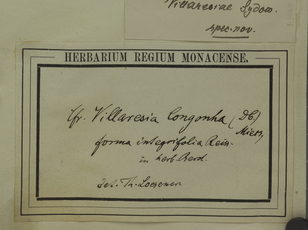 Villaresiae Sydow.
spec. nov.
HERBARIUM REGIUM MONACENSE.
Cfr. Villaresia Congonha (DC)
Miers,
forma integrifolia Reis.
in herb. Berol.
det. Th. Loesener